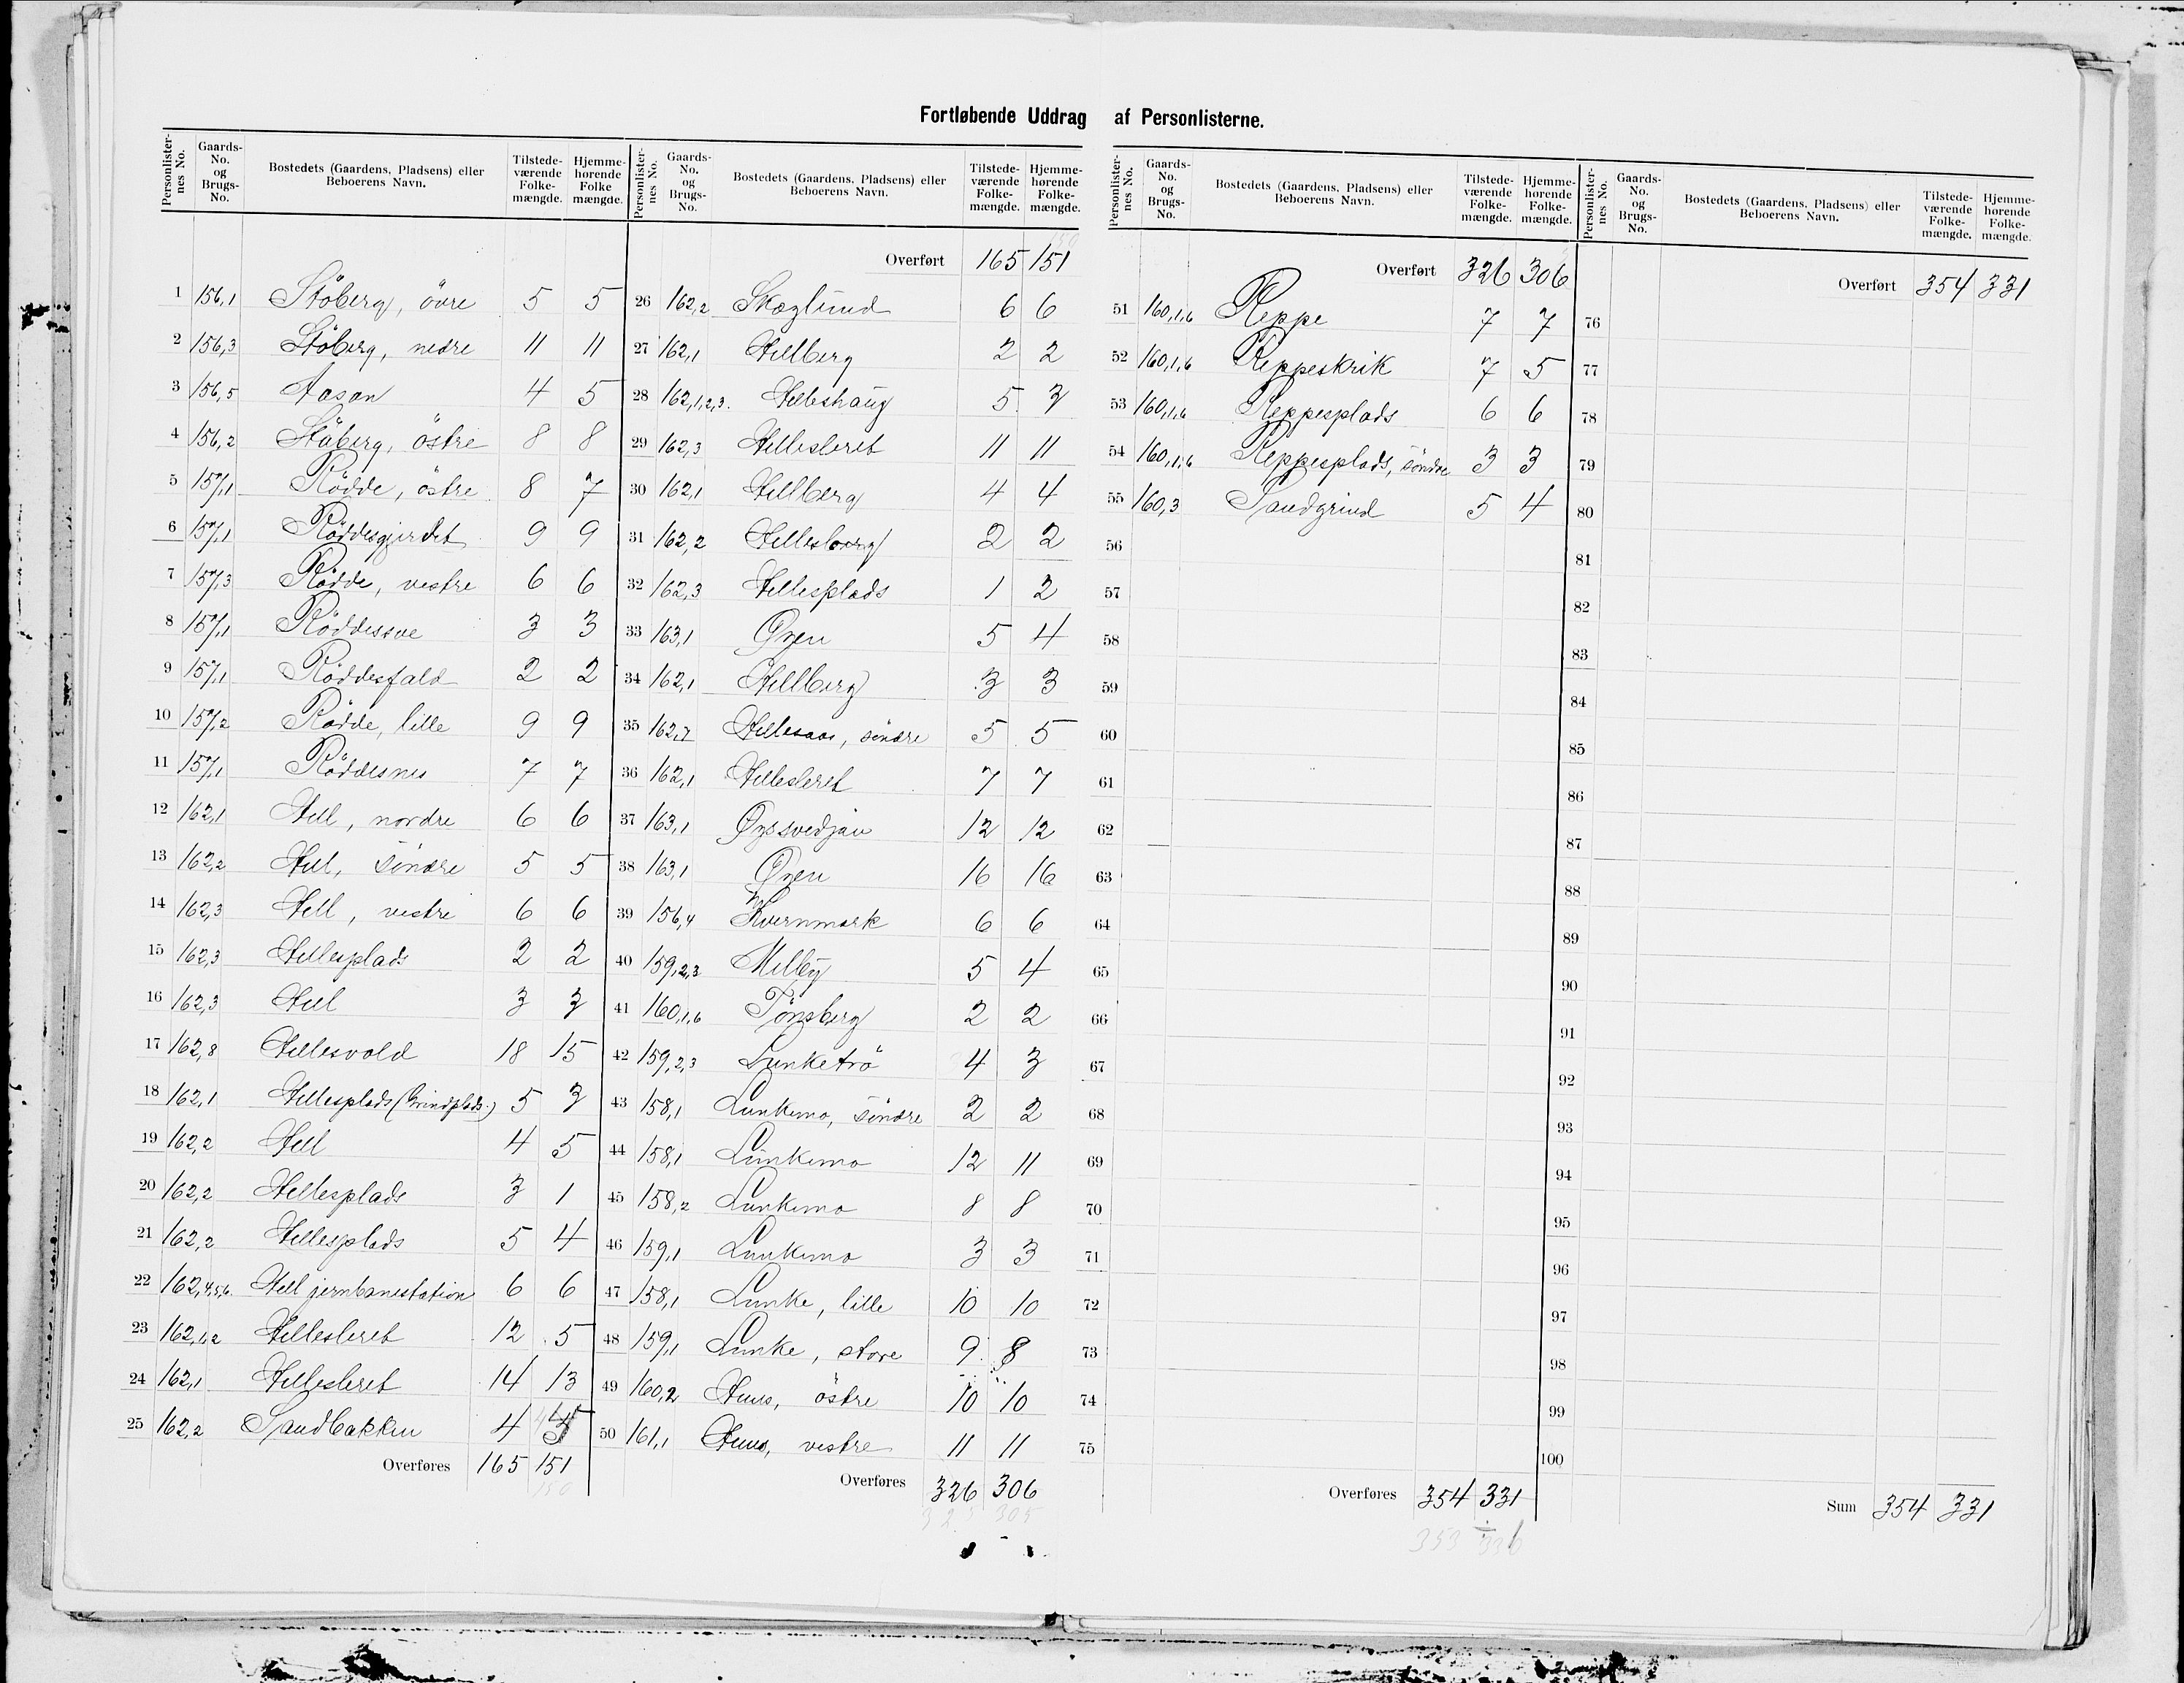 Fortløbende Uddrag af Personlisterne.
Personlister-nes No. Gaards-No. og Brugs-No. Bostedets (Gaardens, Pladsens) eller Beboerens Navn. Tilstede-værende Folke-mængde. Hjemme-hørende Folke mængde.
1 156,1 Stöberg, övre 5 5
2 156,3 Stöberg, nedre 11 11
3 156,5 Aasan 4 5
4 156,2 Stöberg, östre 8 8
5 157,1 Rödde, östre 8 7
6 157,1 Röddesgjerdet 9 9
7 157,3 Rödde, vestre 6 6
8 157,1 Röddessve 3 3
9 157,1 Röddesfald 2 2
10 157,2 Rödde, lille 9 9
11 157,1 Röddesnes 7 7
12 162,1 Hell, nordre 6 6
13 162,2 Hell, söndre 5 5
14 162,3 Hell, vestre 6 6
15 162,3 Hellesplads 2 2
16 162,3 Hell 3 3
17 162,8 Hellesvold 18 15
18 162,1 Hellesplads (Grindplads.) 5 3
19 162,2 Hell 4 5
20 162,2 Hellesplads 3 1
21 162,2 Hellesplads 5 4
22 162,4,5,6. Hell jernbanestation 6 6
23 162,1,2 Hellesleret 12 5
24 162,1 Hellesleret 14 13
25 162,2 Sandbakken 4
Overføres 165 151
150
Personlister-nes No. Gaards-No. og Brugs-No. Bostedets (Gaardens, Pladsens) eller Beboerens Navn. Tilstede-værende Folke-mængde. Hjemme-hørende Folke-mængde.
Overført 165 151
26 162,2 Skoglund 6 6
27 162,1 Hellberg 2 2
28 162,1,2,3. Helleshaug 5 3
29 162,3 Hellesleret 11 11
30 162,1 Hellberg 4 4
31 162,2 Hellesberg 2 2
32 162,3 Hellesplads 1 2
33 163,1 Øyen 5 4
34 162,1 Hellberg 3 3
35 162,7 Hellesaas, söndre 5 5
36 162,1 Hellesleret 7 7
37 163,1 Øyssvedjan 12 12
38 163,1 Øyen 16 16
39 156,4 Kvernmark 6 6
40 159,2,3 Milby 5 4
41 160,1,6 Tönsberg 2 2
42 159,2,3 Lunketrö 4 3
43 158,1 Lunkemo, söndre 2 2
44 158,1 Lunkemo 12 11
45 158,2 Lunkemo 8 8
46 159,1 Lunkemo 3 3
47 158,1 Lunke, lille 10 10
48 159,1 Lunke, store 9 8
49 160,2 Huus, östre 10 10
50 161,1 Huus, vestre 11 11
Overføres 326 306
325 305
Personlister-nes No. Gaards-No. og Brugs-No. Bostedets (Gaardens, Pladsens) eller Beboerens Navn. Tilstede-værende Folke-mængde. Hjemme-hørende Folke-mængde.
Overført 326 306
51 160,1,6 Reppe 7 7
52 160,1,6 Reppeskrik 7 5
53 160,1,6 Reppesplads 6 6
54 160,1,6 Reppesplads, söndre 3 3
55 160,3 Sandgrind 5 4
56
57
58
59
60
61
62
63
64
65
66
67
68
69
70
71
72
73
74
75
Overføres 354 331
353 330
Personlister-nes No. Gaards-No. og Brugs-No. Bostedets (Gaardens, Pladsens) eller Beboerens Navn. Tilstede-værende Folke-mængde. Hjemme-hørende Folke-mængde.
Overført 354 331
76
77
78
79
80
81
82
83
84
85
86
87
88
89
90
91
92
93
94
95
96
97
98
99
100
Sum 354 331